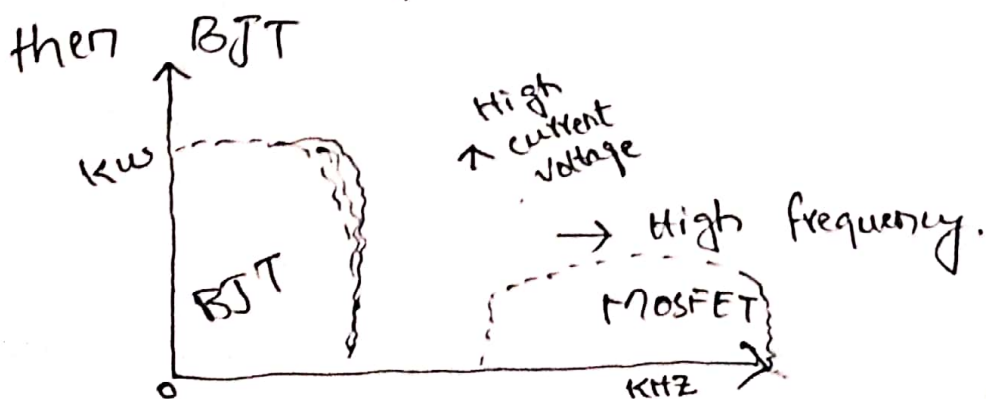 then BJT
High
↑ current
voltage
KW
→ High frequency.
BJT
MOSFET
0
KHZ